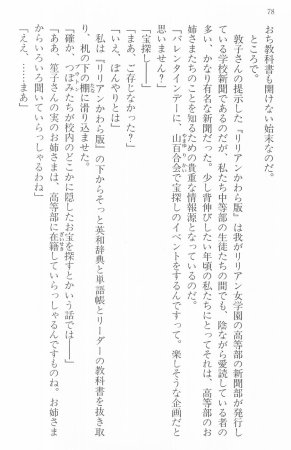 78
おち教科書も開けない始末なのだ。
ところで。
敦子さんの提示した『リリアンかわら版』は我がリリアン女学園の高等部の新聞部が発行し
ている学校新聞であるのだが、私たち中等部の生徒たちの間でも、陰ながら愛読している者の
多い、かなり有名な新聞だった。少し背伸びしたい年頃の私たちにとってそれは、高等部のお
姉さまたちのことを知るための貴重な情報源となっているのだ。
「バレンタインデーに、山百合会で宝探しのイベントをするんですって。楽しそうな企画だと
思いません?」
「宝探し――」
「まあ、ご存じなかった?」
「いえ、ぼんやりとは」
私は『リリアンかわら版』の下からそっと英和辞典と単語帳とリーダーの教科書を抜き取
り、机の下の棚に滑り込ませた。
「確か、つぼみたちが校内のどこかに隠したお宝を探すとかいう話では――」
「ああ、笙子さんの実のお姉さまは、高等部に在籍していらっしゃるんですものね。お姉さま
からいろいろ聞いていらっしゃるわよね」
「ええ、……まあ」